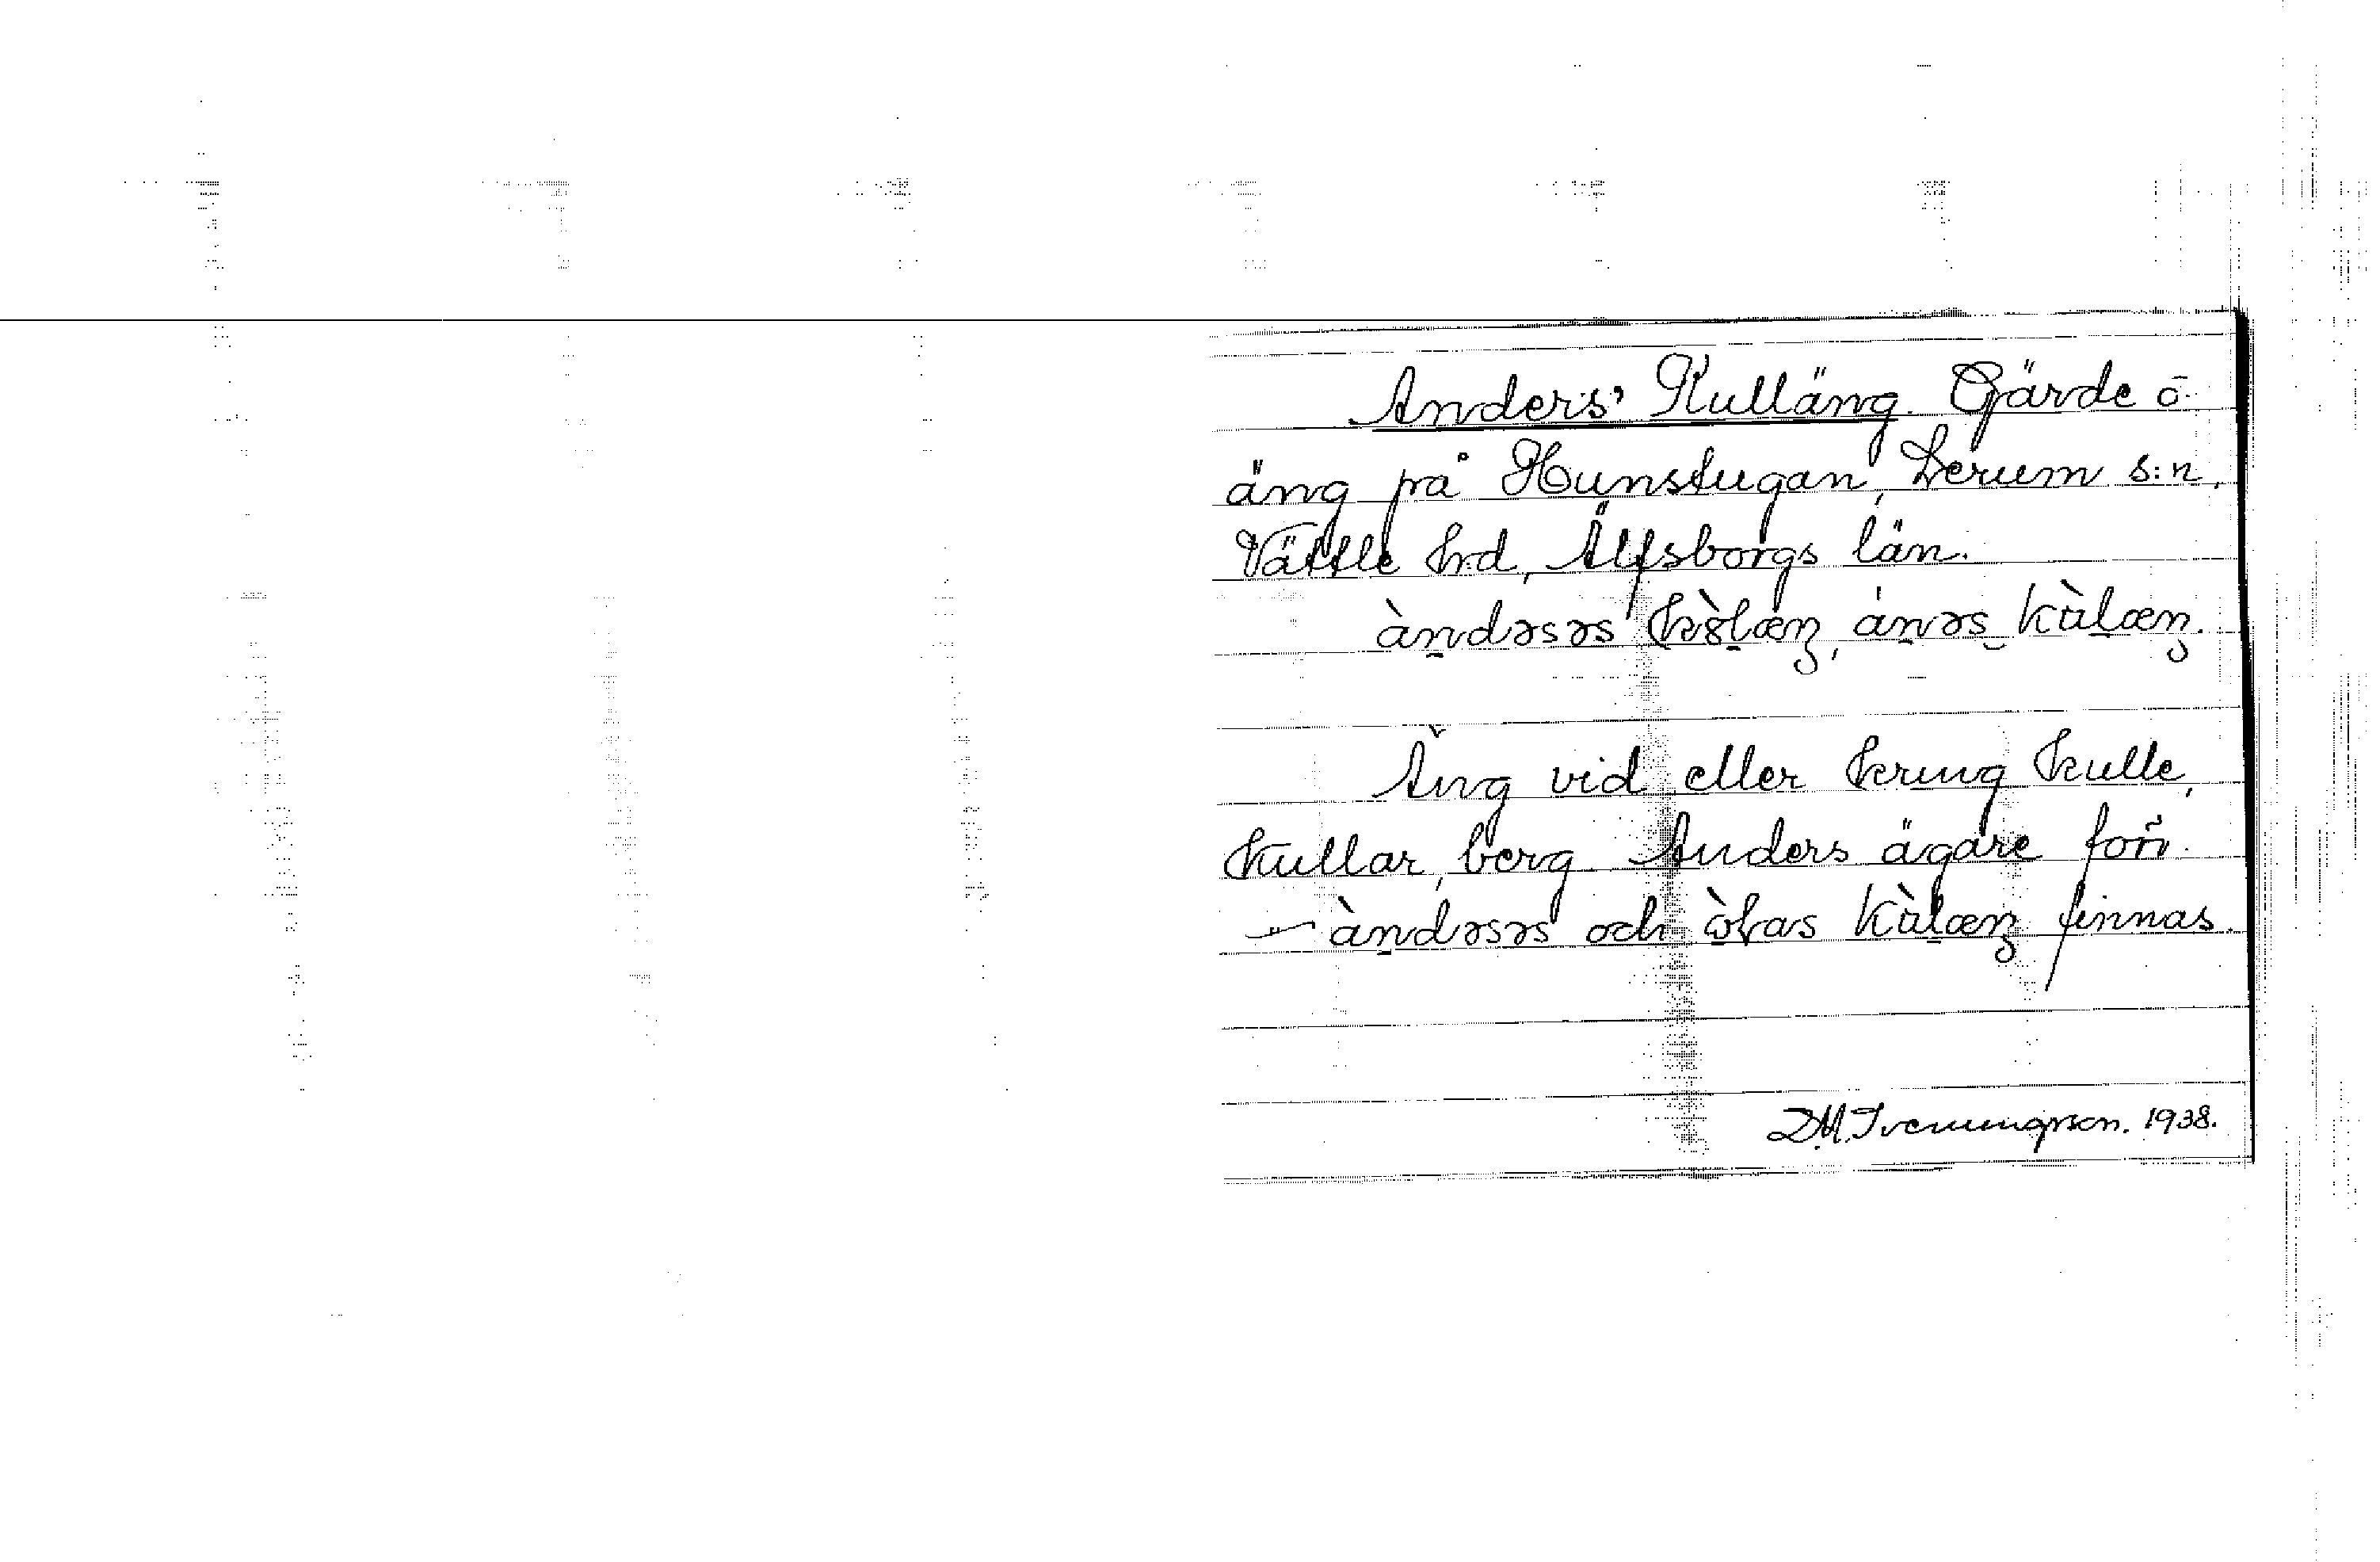 Anders' Kulläng. Gärde o.
äng på Hunstugan, Lerum s:n,
Vättle hrd, Älfsborgs län.
àndəsəs kòlæŋ, ánəs kùlæŋ.
Äng vid eller kring kulle,
kullar, berg. Anders ägare förr.
— àndəsəs och kùlæŋ finnas.
1938.